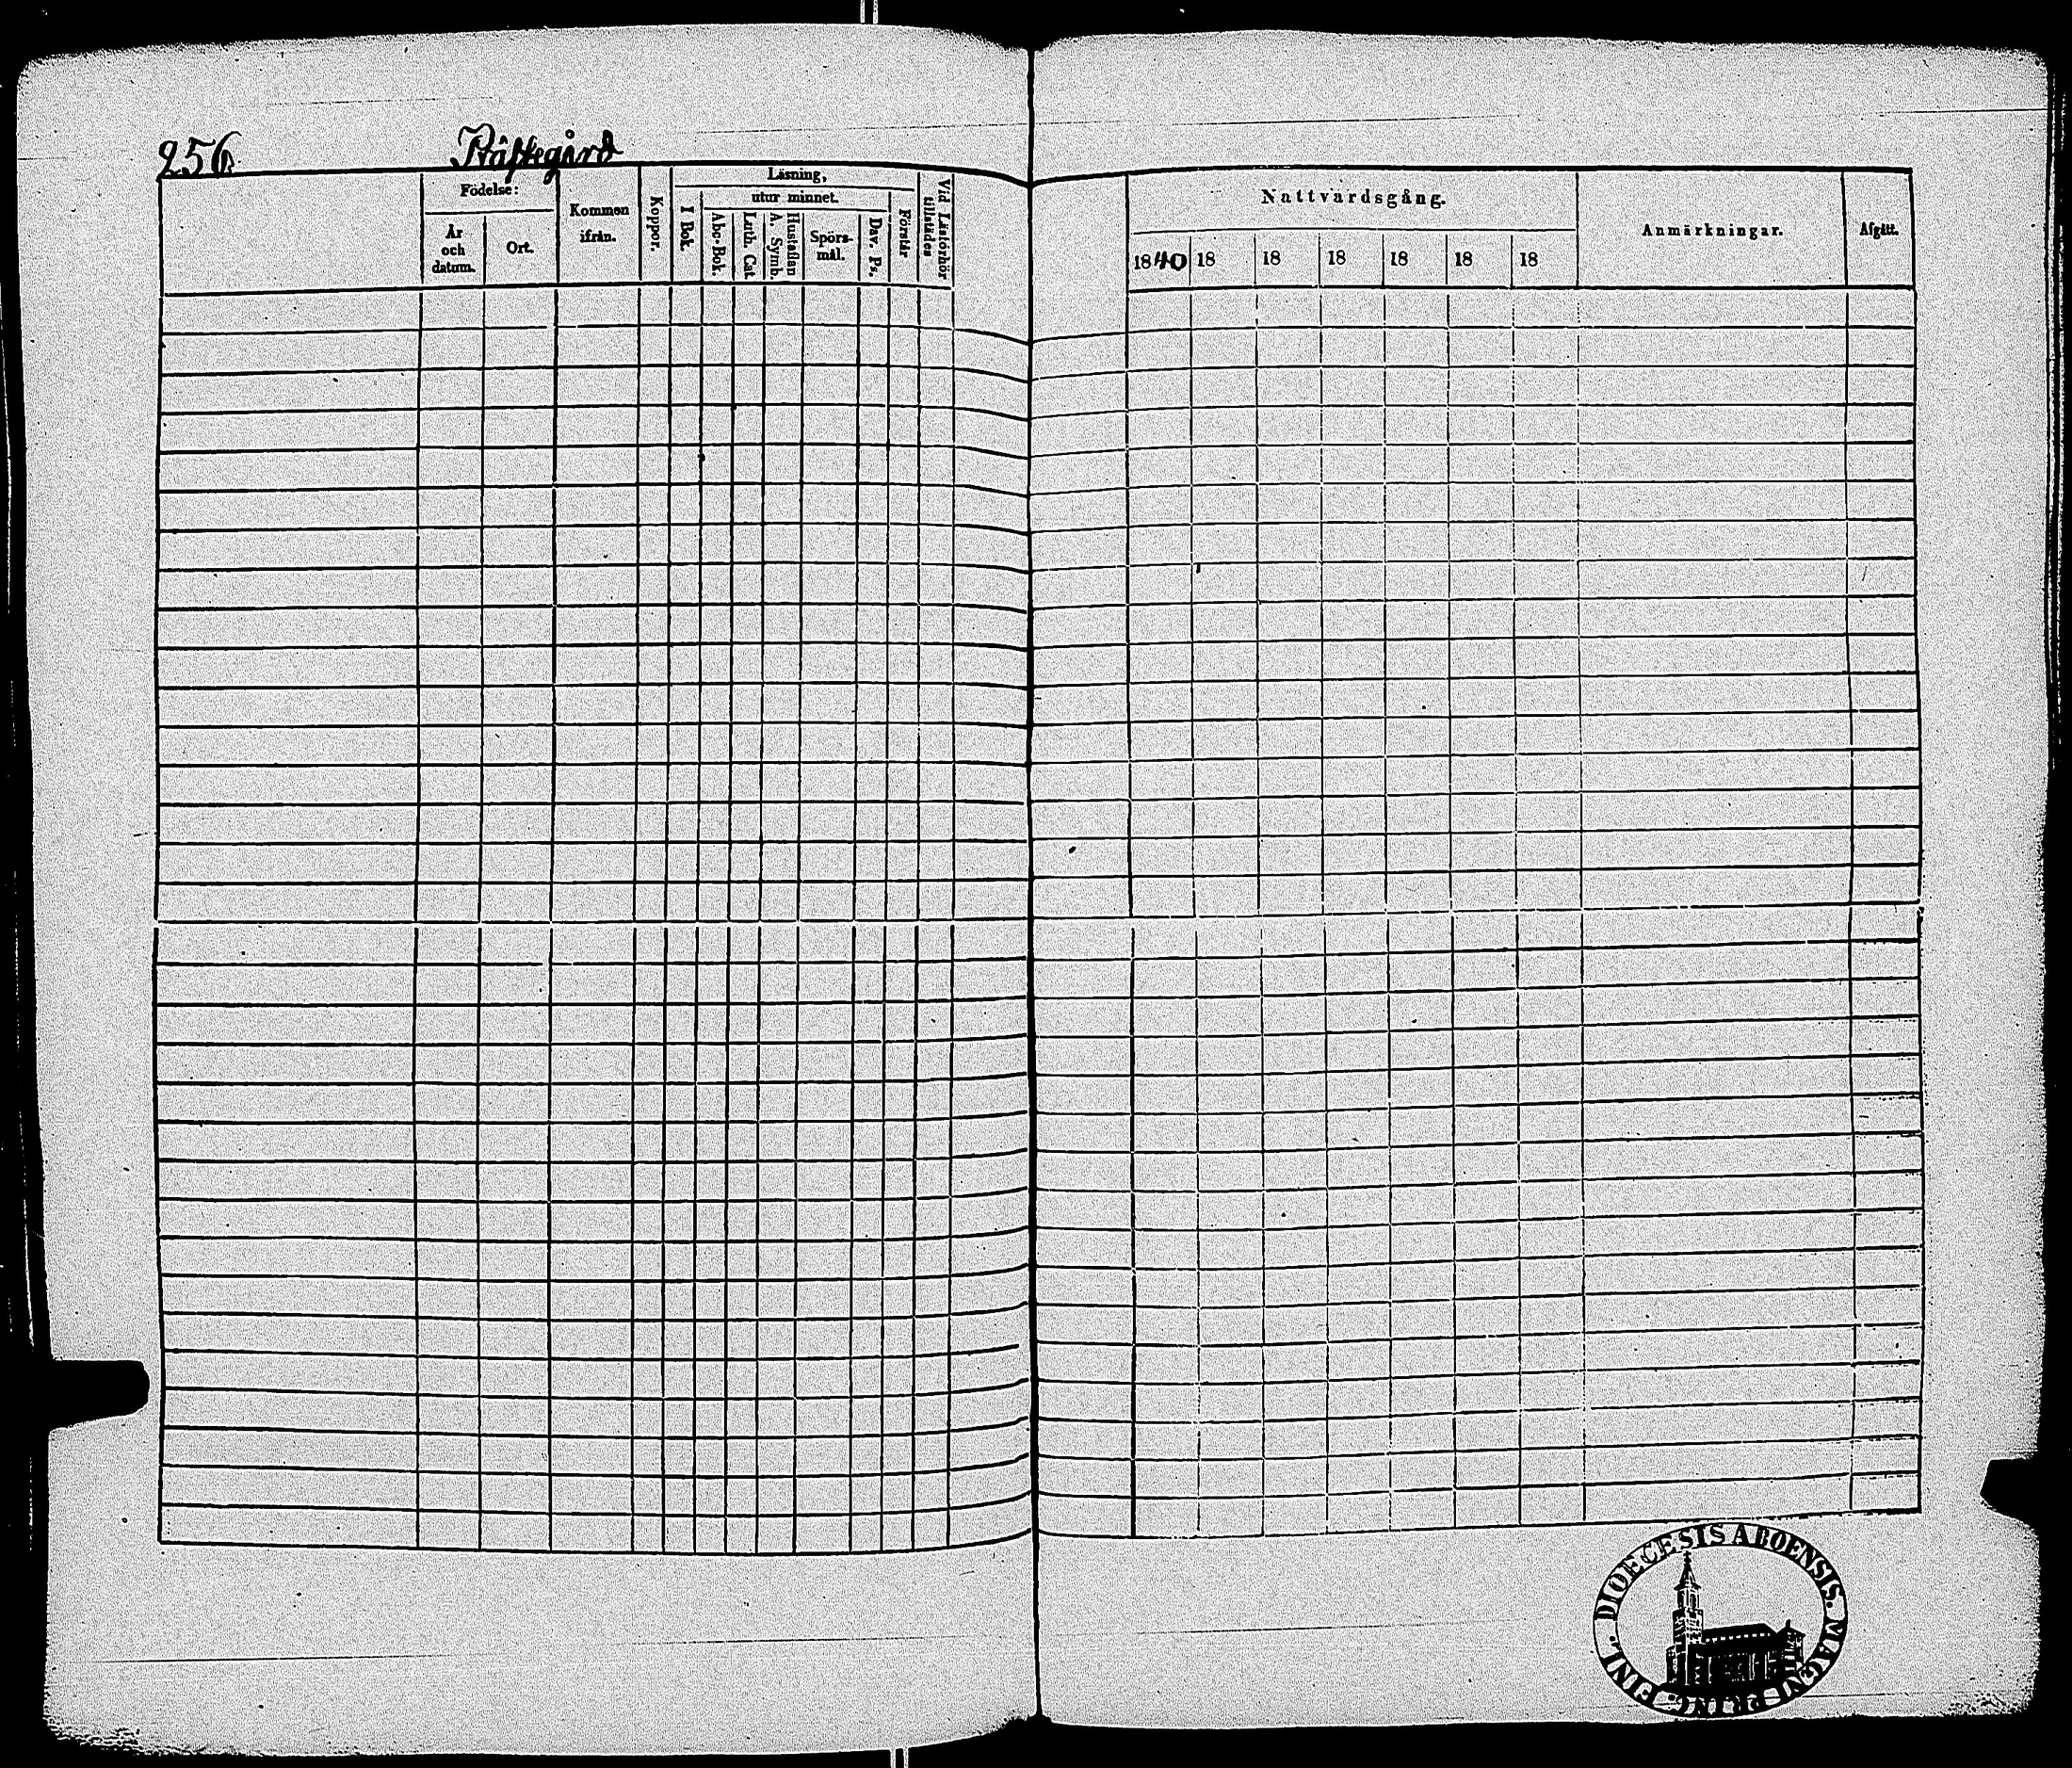 256
Födelse:
År och datum.
Ort.
Kommen ifrån.
Koppor.
Läsning,
I Bok.
utur minnet.
Abc-Bok.
Luth. Cat.
Hustaflan A. Symb.
Spörs-mål.
Dav. Ps.
Förstår
Vid Läsförhör tillstädes
Nattvardsgång.
1840 18 18 18 18 18 18
Anmärkningar.
Afgått.
DIOECESIS ABOENSIS. MAGNI PRINC. FINL.